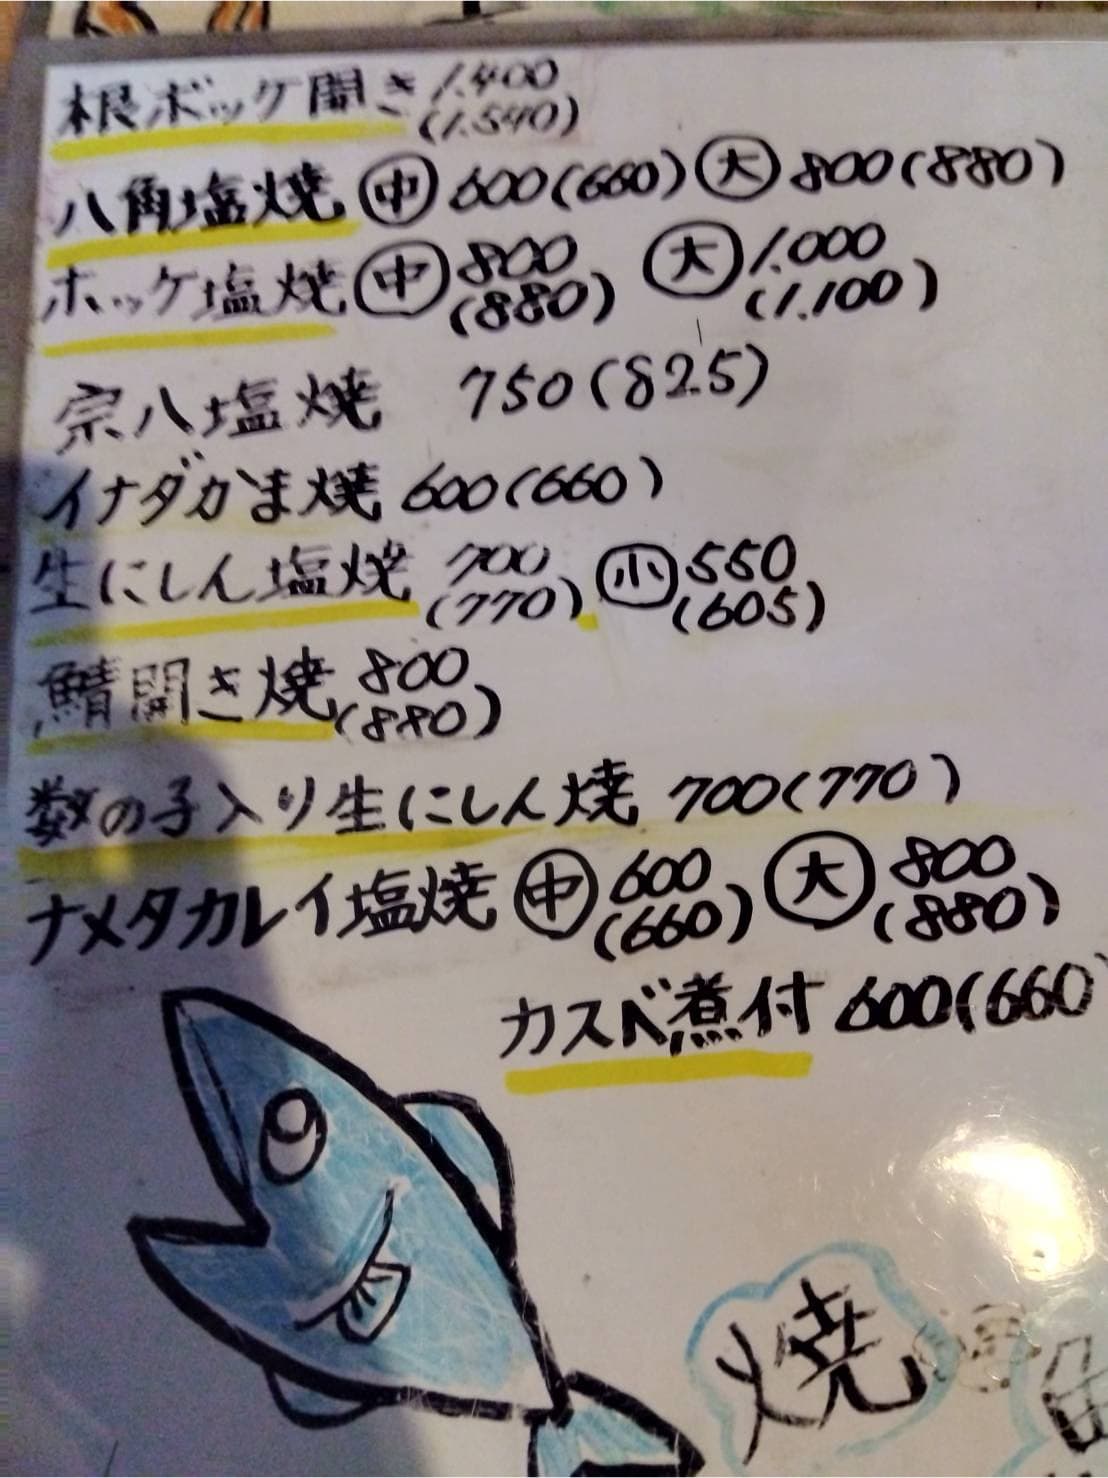 根ボッケ開き 1.400
(1.540)
八角塩焼 ㊥ 600(660) 大 800(880)
ホッケ塩焼 ㊥ 800 大 1.000
(880) (1.100)
宗八塩焼 750(825)
イナダかま焼 600(660)
生にしん塩焼 700 小 550
(770) (605)
鯖開き焼 800
(880)
数の子入り生にしん焼 700(770)
ナメタカレイ塩焼 ㊥ 600 大 800
(660) (880)
カスベ煮付 600(660)
焼